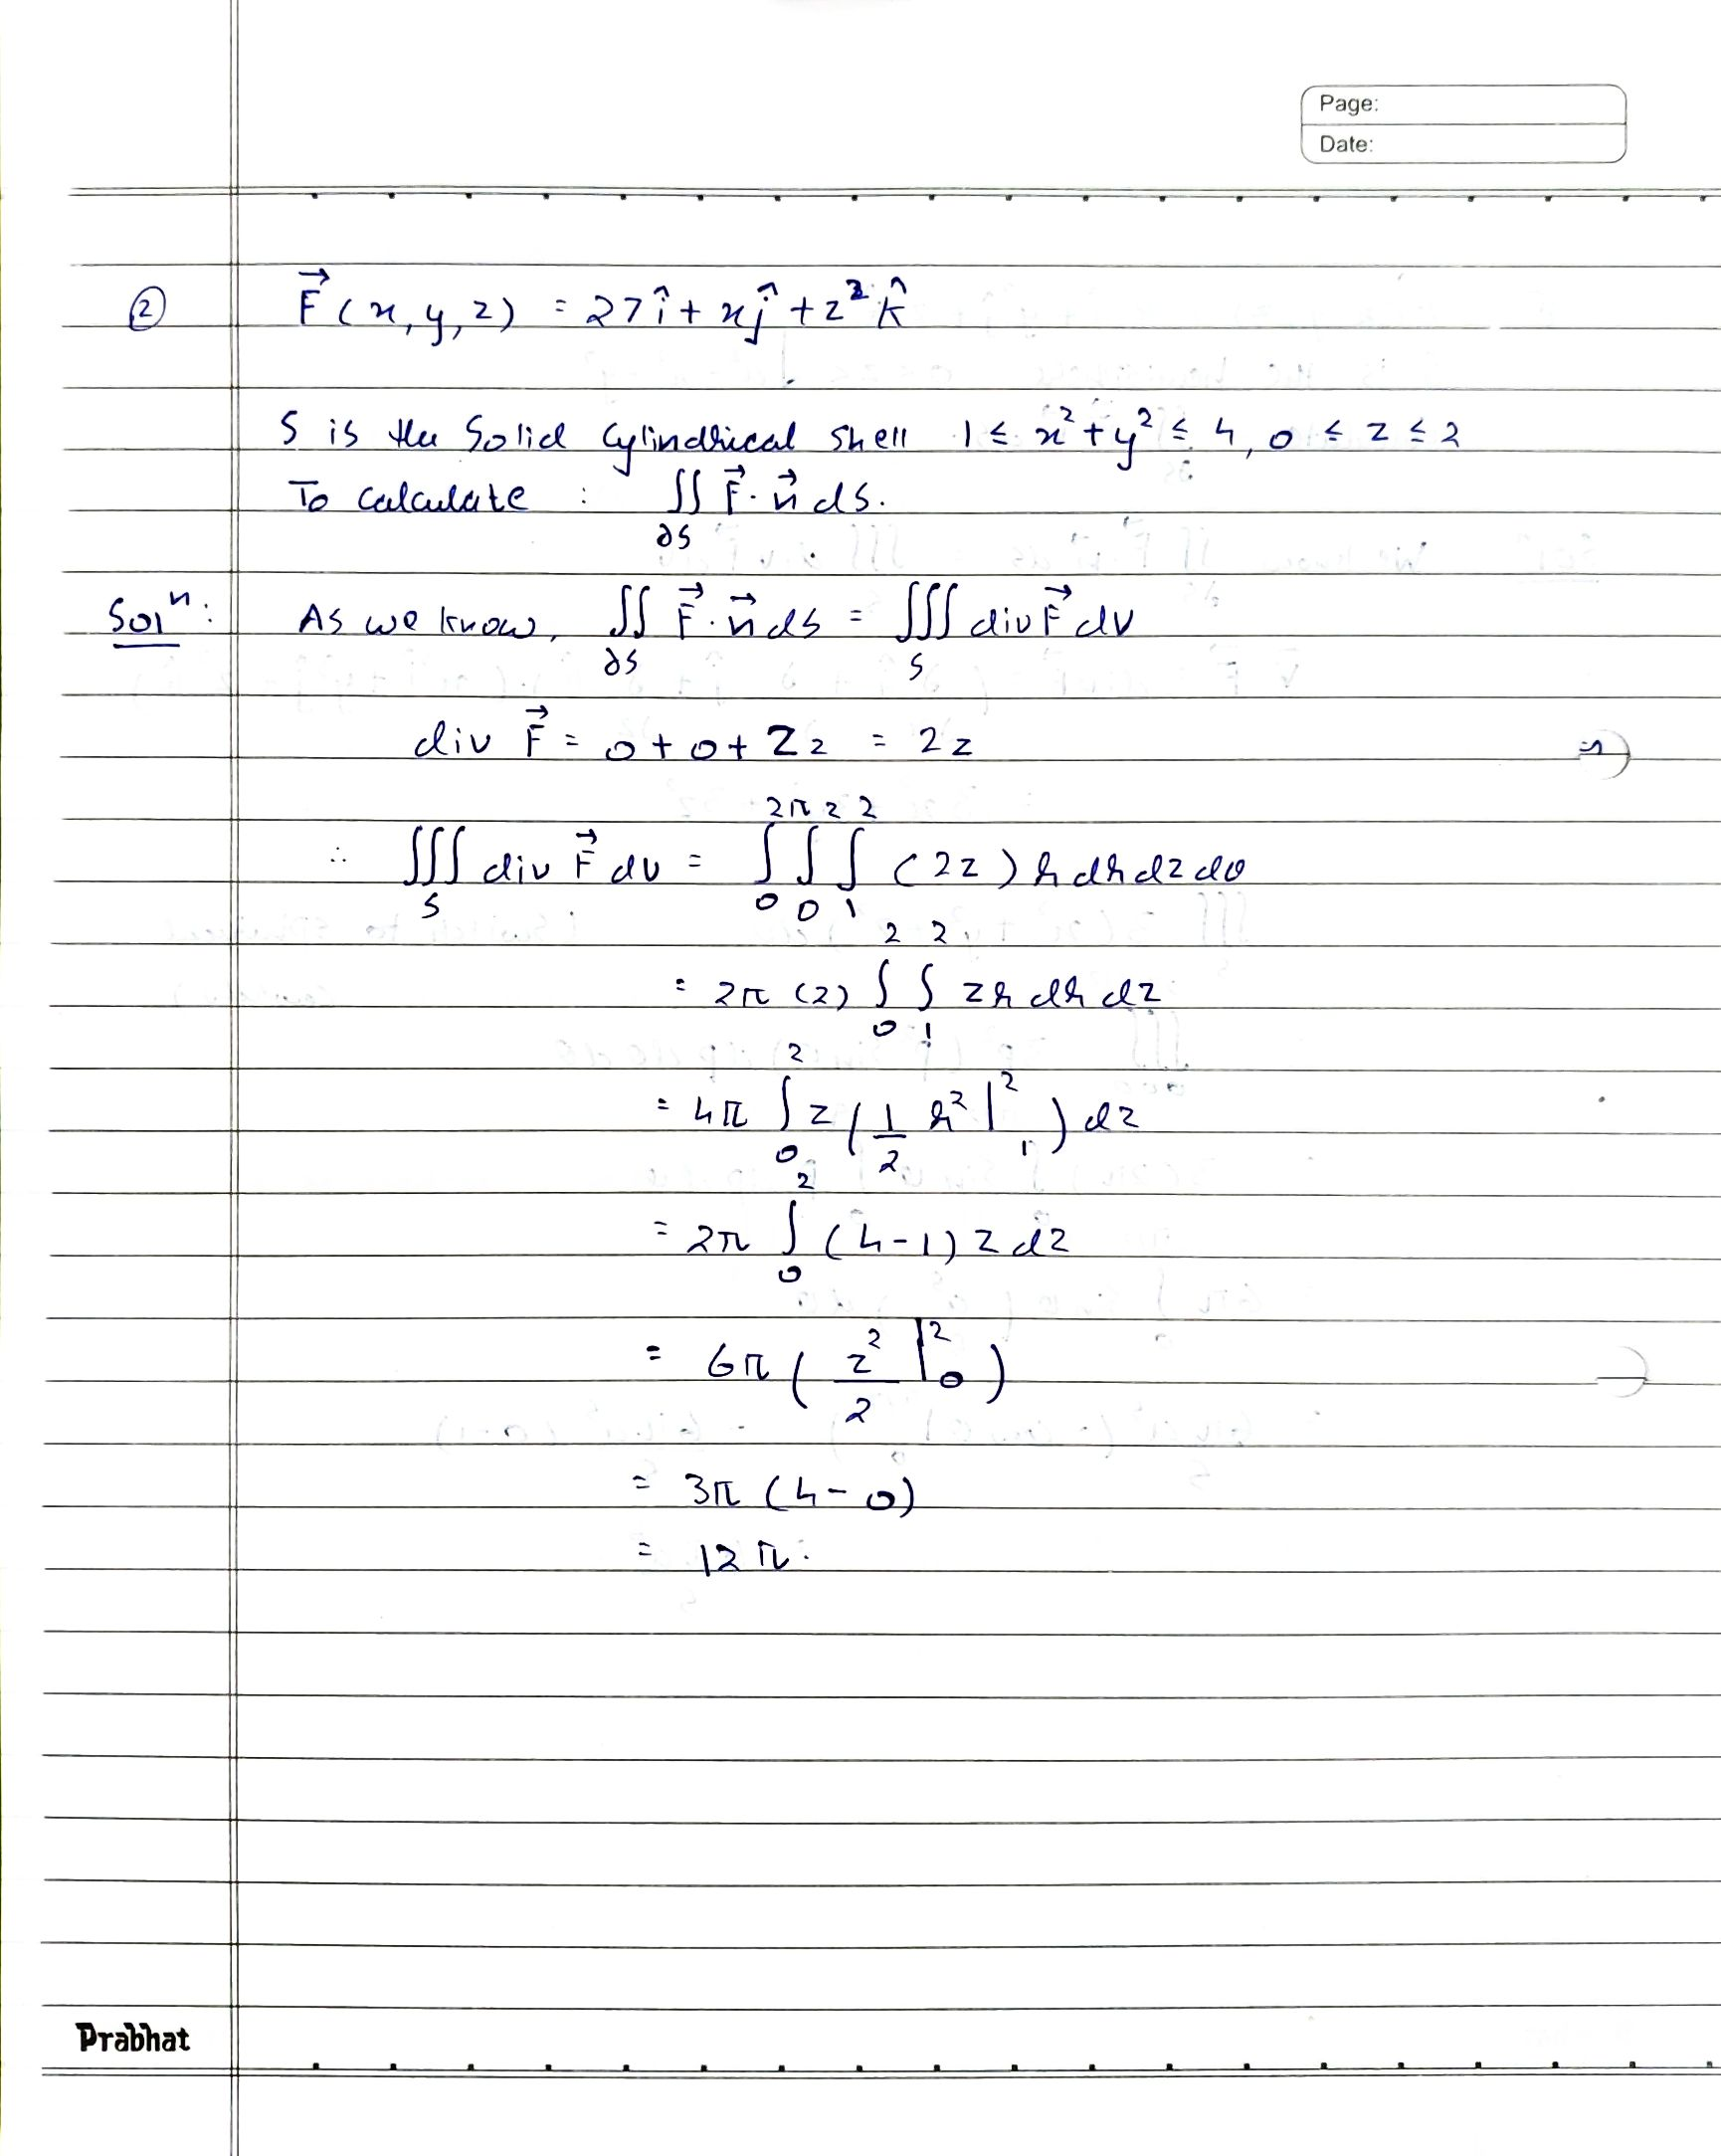 Page:
Date:
② F⃗ (x, y, z) = 27 î + x ĵ + z² k̂
S is the Solid Cylindrical Shell 1 ≤ x² + y² ≤ 4, 0 ≤ z ≤ 2
To Calculate : ∬_∂S F⃗ . n⃗ ds.
Solⁿ: As we know, ∬_∂S F⃗ . n⃗ ds = ∭_S div F⃗ dv
div F⃗ = 0 + 0 + 2z = 2z
∴ ∭_S div F⃗ dv = ∫_0^2π ∫_0^2 ∫_1^2 (2z) r dr dz dθ
= 2π (2) ∫_0^2 ∫_1^2 z r dr dz
= 4π ∫_0^2 z ( 1/2 r² |_1^2 ) dz
= 2π ∫_0^2 (4-1) z dz
= 6π ( z²/2 |_0^2 )
= 3π (4-0)
= 12π.
Prabhat